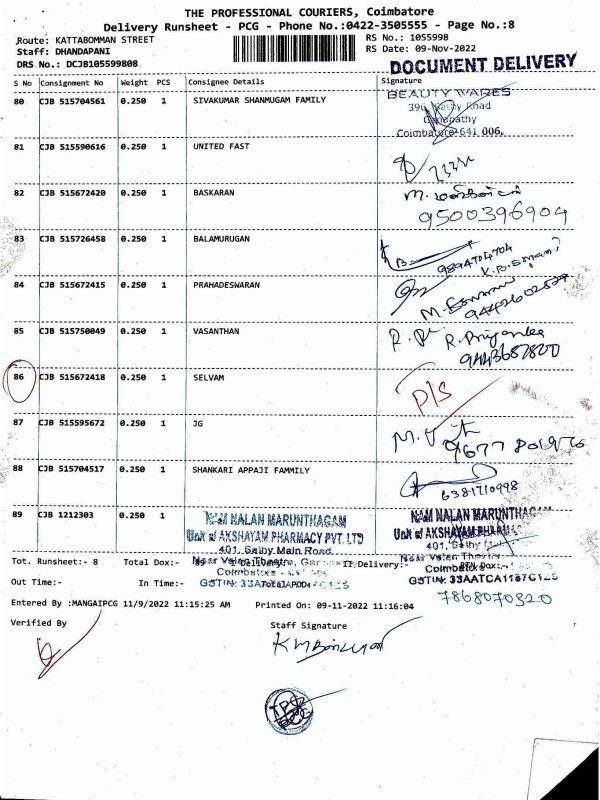 THE PROFESSIONAL COURIERS, Coimbatore
Delivery Runsheet - PCG - Phone No.:0422-3505555 - Page No.:8
Route: KATTABOMMAN STREET
RS No.: 1055998
Staff: DHANDAPANI
RS Date: 09-Nov-2022
DRS No.: DCJB105599808
DOCUMENT DELIVERY
S No Consignment No Weight PCS Consignee Details Signature
80 CJB 515704561 0.250 1 SIVAKUMAR SHANMUGAM FAMILY
BEAUTY WARES
396, Sathy Road
Ganapathy
Coimbatore-641 006.
81 CJB 515590616 0.250 1 UNITED FAST
82 CJB 515672420 0.250 1 BASKARAN
9500396904
83 CJB 515726458 0.250 1 BALAMURUGAN
9894704704
84 CJB 515672415 0.250 1 PRAHADESWARAN
85 CJB 515750049 0.250 1 VASANTHAN
R. Priyanka
9443687820
86 CJB 515672418 0.250 1 SELVAM
P/S
87 CJB 515595672 0.250 1 JG
88 CJB 515704517 0.250 1 SHANKARI APPAJI FAMMILY
6381710998
89 CJB 1212303 0.250 1
NAM NALAN MARUNTHAGAM
Unit of AKSHAYAM PHARMACY PVT. LTD
401, Sathy Main Road,
NAM NALAN MARUNTHAGAM
Unit of AKSHAYAM PHARMA
401, Sathy
Tot. Runsheet:- 8 Total Dox:- Delivery:-
Near Velan Theatre,
Coimbatore
Near Velan Theatre,
Coimbatore
Out Time:- In Time:-
GSTIN: 33AATCA1187C1Z6
7868070320
Entered By :MANGAIPCG 11/9/2022 11:15:25 AM Printed On: 09-11-2022 11:16:04
Verified By
Staff Signature
TPC
PCG